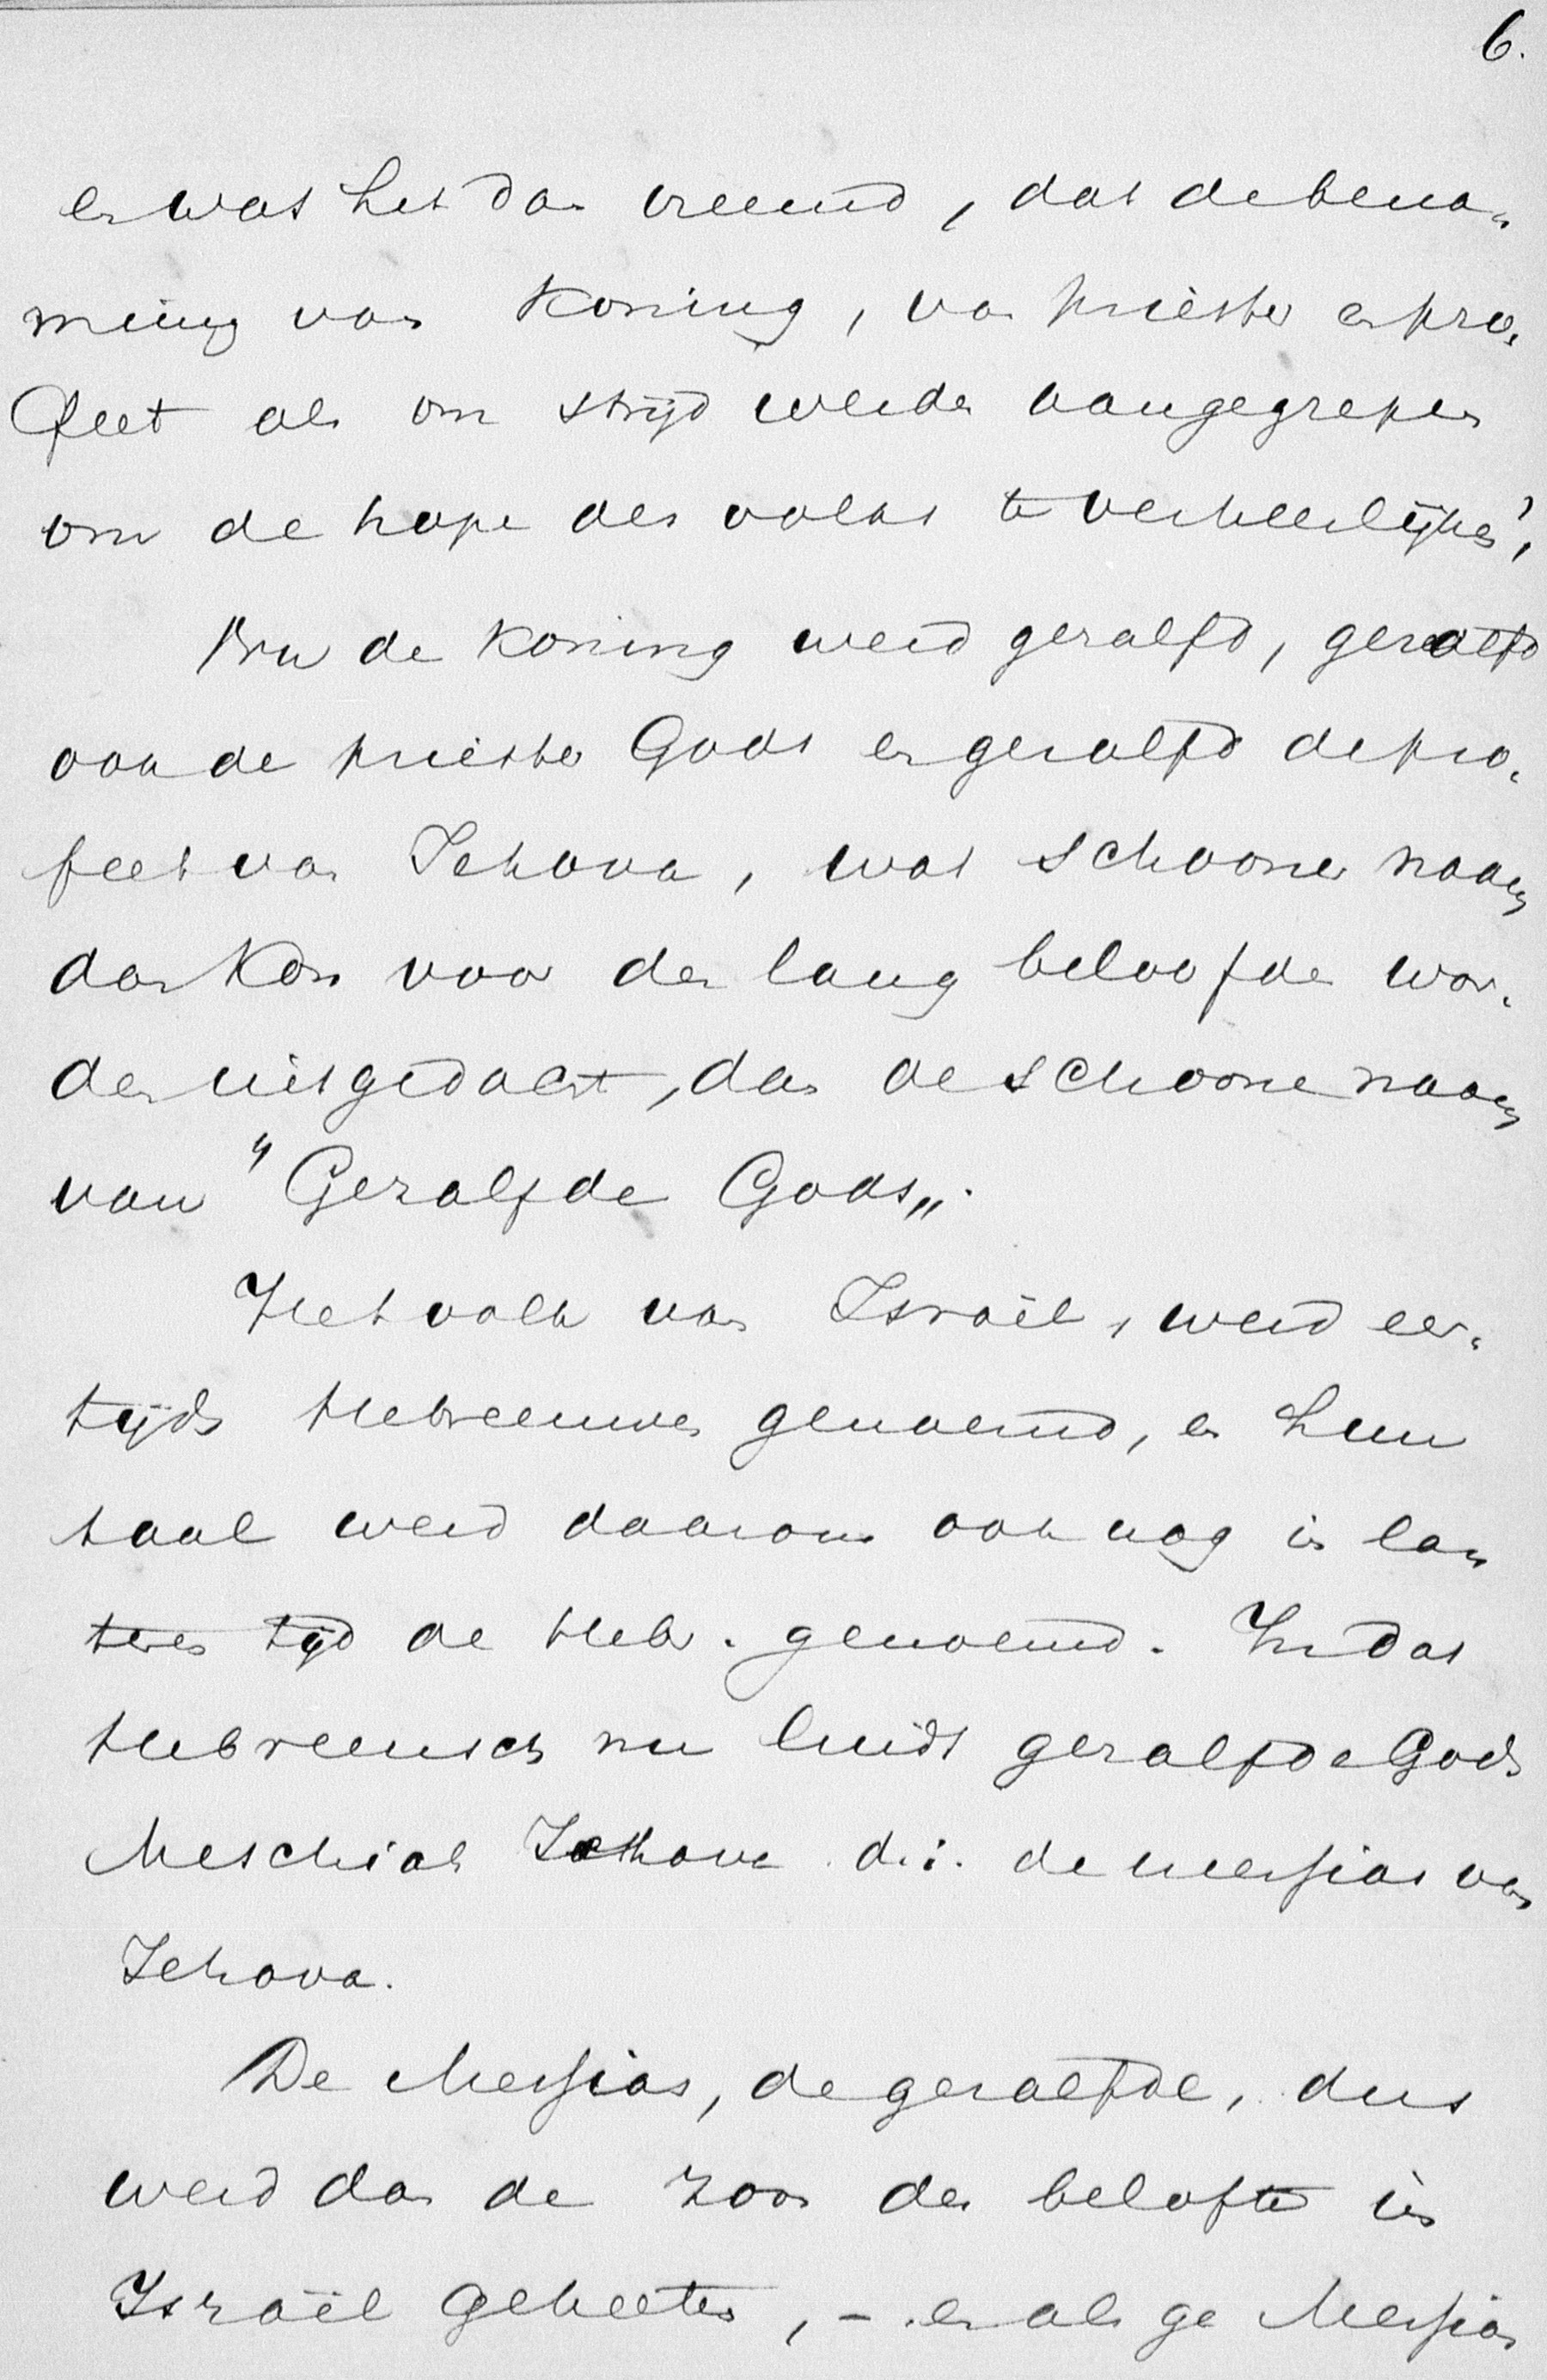 6.
en was het dan vreemd, dat de bena-
ming van Koning, van priester en pro-
feet als om strijd werden aangegrepen
om de hope des volks te verheerlijken?
Nu de Koning werd gezalfd, gezalfd
ook de priester Gods en gezalfd de pro-
feet van Jehova, wat schooner naam
dan kon voor den lang beloofden wor-
den uitgedacht, dan de schoone naam
van "Gezalfde Gods".
Het volk van Israël, werd eer-
tijds Hebreeuwen genoemd, en hun
taal werd daarom ook nog in la-
teren tijd de Hebr. genoemd. In dat
Hebreeuwsch nu luidt gezalfde Gods
Meschiah Jehova d.i. de Messias van
Jehova.
De Messias, de gezalfde, dus
werd dan de zoon der belofte in
Israël geheeten, - en als ge Messias